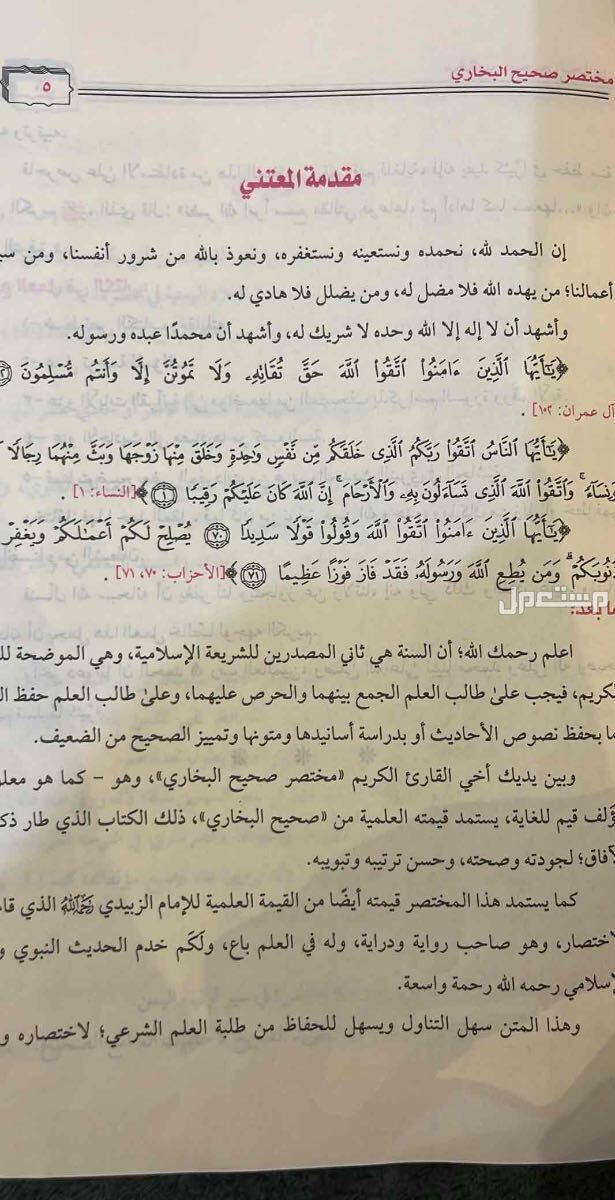 مختصر صحيح البخاري
٥
مقدمة المعتني
إن الحمد لله، نحمده ونستعينه ونستغفره، ونعوذ بالله من شرور أنفسنا، ومن
أعمالنا؛ من يهده الله فلا مضل له، ومن يضلل فلا هادي له.
وأشهد أن لا إله إلا الله وحده لا شريك له، وأشهد أن محمدًا عبده ورسوله.
﴿يَٰٓأَيُّهَا ٱلَّذِينَ ءَامَنُوا۟ ٱتَّقُوا۟ ٱللَّهَ حَقَّ تُقَاتِهِۦ وَلَا تَمُوتُنَّ إِلَّا وَأَنتُم مُّسْلِمُونَ
آل عمران: ١٠٢] .
﴿يَٰٓأَيُّهَا ٱلنَّاسُ ٱتَّقُوا۟ رَبَّكُمُ ٱلَّذِى خَلَقَكُم مِّن نَّفْسٍ وَٰحِدَةٍ وَخَلَقَ مِنْهَا زَوْجَهَا وَبَثَّ مِنْهُمَا رِجَالًا
وَنِسَآءً ۚ وَٱتَّقُوا۟ ٱللَّهَ ٱلَّذِى تَسَآءَلُونَ بِهِۦ وَٱلْأَرْحَامَ ۚ إِنَّ ٱللَّهَ كَانَ عَلَيْكُمْ رَقِيبًا ١﴾ [النساء: ١] .
﴿يَٰٓأَيُّهَا ٱلَّذِينَ ءَامَنُوا۟ ٱتَّقُوا۟ ٱللَّهَ وَقُولُوا۟ قَوْلًا سَدِيدًا ٧٠ يُصْلِحْ لَكُمْ أَعْمَٰلَكُمْ وَيَغْفِرْ
ذُنُوبَكُمْ ۗ وَمَن يُطِعِ ٱللَّهَ وَرَسُولَهُۥ فَقَدْ فَازَ فَوْزًا عَظِيمًا ٧١﴾ [الأحزاب: ٧٠، ٧١] .
مستعمل
بعد:
اعلم رحمك الله؛ أن السنة هي ثاني المصدرين للشريعة الإسلامية، وهي الموضحة
الكريم، فيجب على طالب العلم الجمع بينهما والحرص عليهما، وعلى طالب العلم حفظ
بحفظ نصوص الأحاديث أو بدراسة أسانيدها ومتونها وتمييز الصحيح من الضعيف.
وبين يديك أخي القارئ الكريم «مختصر صحيح البخاري»، وهو – كما هو
مؤلف قيم للغاية، يستمد قيمته العلمية من «صحيح البخاري»، ذلك الكتاب الذي طار
الآفاق؛ لجودته وصحته، وحسن ترتيبه وتبويبه.
كما يستمد هذا المختصر قيمته أيضًا من القيمة العلمية للإمام الزبيدي رحمه الله الذي
الاختصار، وهو صاحب رواية ودراية، وله في العلم باع، ولَكَم خدم الحديث النبوي
الإسلامي رحمه الله رحمة واسعة.
وهذا المتن سهل التناول ويسهل للحفاظ من طلبة العلم الشرعي؛ لاختصاره